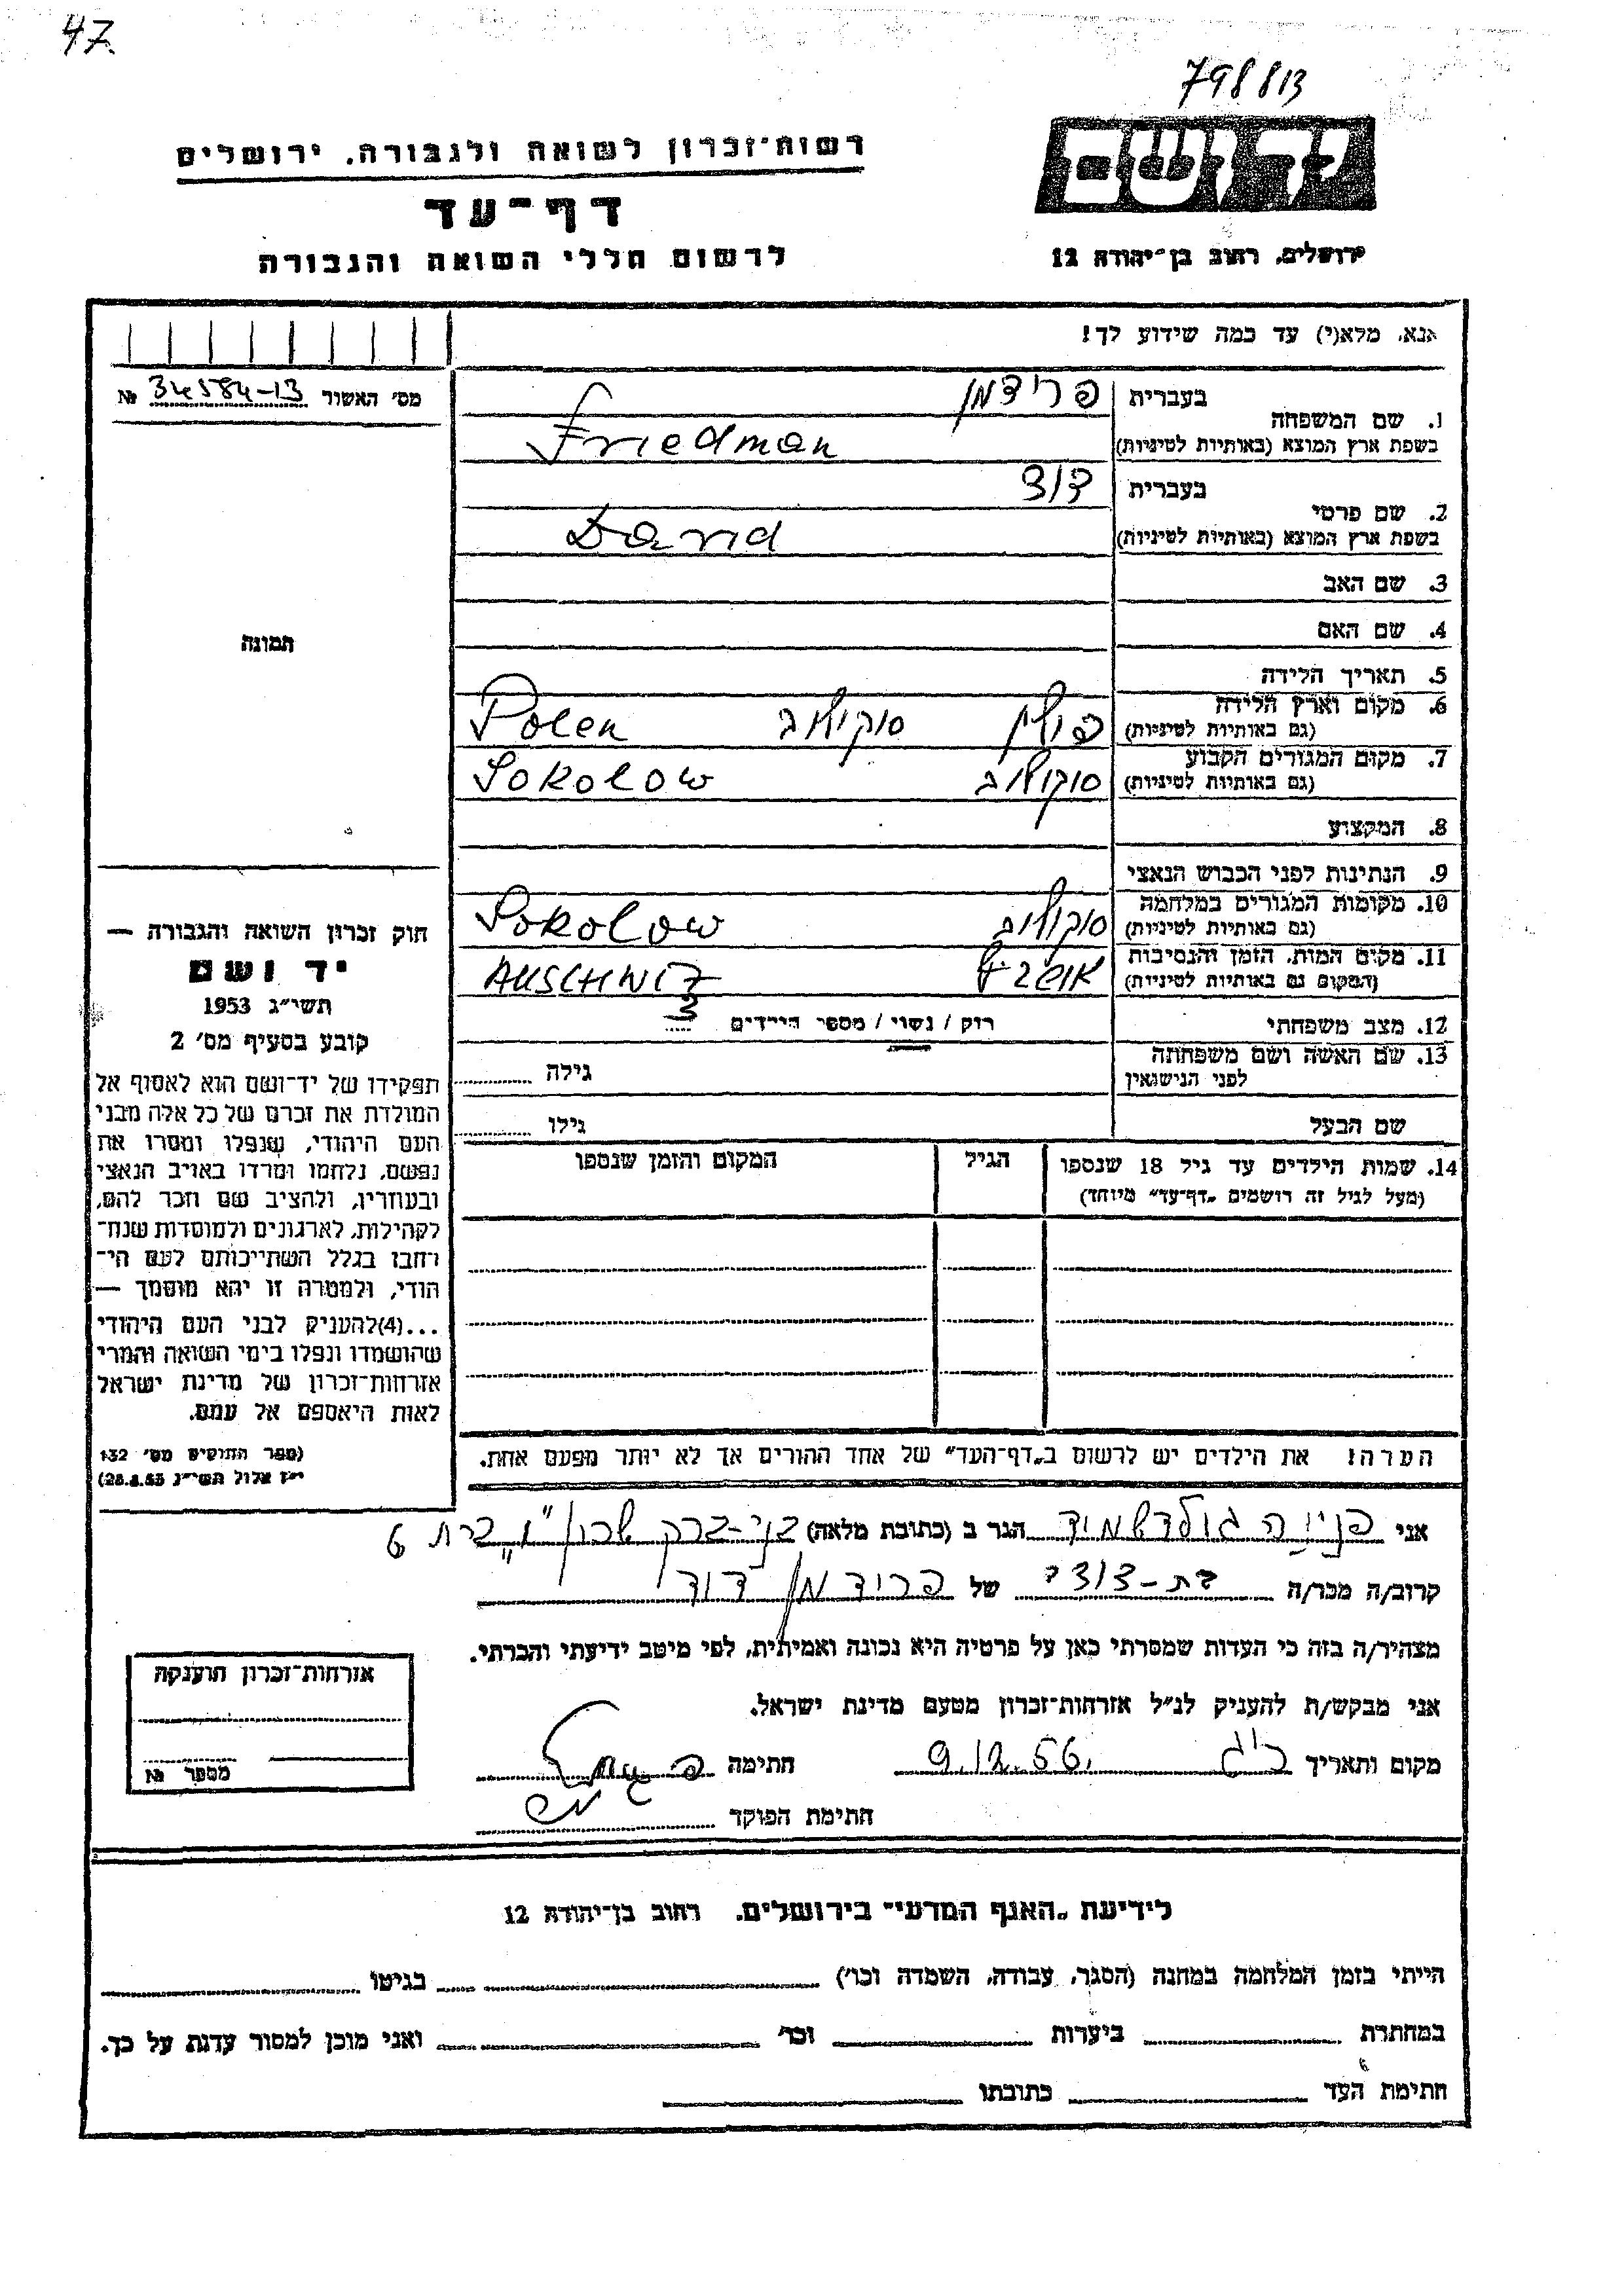 47
798813
יד ושם
ירושלים, רחוב בן־יהודה 12
רשות־זכרון לשואה ולגבורה, ירושלים
דף־עד
לרשום חללי השואה והגבורה
אנא, מלא(י) עד כמה שידוע לך!
מס׳ האשור 34584-13 №
1. שם המשפחה
בעברית פרידמן
בשפת ארץ המוצא (באותיות לטיניות) Friedman
2. שם פרטי
בעברית דוד
בשפת ארץ המוצא (באותיות לטיניות) David
3. שם האב
4. שם האם
תמונה
5. תאריך הלידה
6. מקום וארץ הלידה
(גם באותיות לטיניות) פולין סוקולוב Polen
7. מקום המגורים הקבוע
(גם באותיות לטיניות) סוקולוב Sokolow
8. המקצוע
9. הנתינות לפני הכבוש הנאצי
10. מקומות המגורים במלחמה
(גם באותיות לטיניות) סוקולוב Sokolow
11. מקום המות, הזמן והנסיבות
(המקום גם באותיות לטיניות) אושביץ AUSCHWITZ
12. מצב משפחתי רוק / נשוי / מספר הילדים 3
13. שם האשה ושם משפחתה
לפני הנישואין גילה
שם הבעל גילו
14. שמות הילדים עד גיל 18 שנספו
(מעל לגיל זה רושמים „דף־עד״ מיוחד)
הגיל
המקום והזמן שנספו
הערה: את הילדים יש לרשום ב„דף־העד״ של אחד ההורים אך לא יותר מפעם אחת.
חוק זכרון השואה והגבורה —
יד ושם
תשי״ג 1953
קובע בסעיף מס׳ 2
תפקידו של יד־ושם הוא לאסוף אל
המולדת את זכרם של כל אלה מבני
העם היהודי, שנפלו ומסרו את
נפשם, נלחמו ומרדו באויב הנאצי
ובעוזריו, ולהציב שם וזכר להם,
לקהילות, לארגונים ולמוסדות שנח־
רבו בגלל השתייכותם לעם הי־
הודי, ולמטרה זו יהא מוסמך —
...(4)להעניק לבני העם היהודי
שהושמדו ונפלו בימי השואה והמרי
אזרחות־זכרון של מדינת ישראל
לאות היאספם אל עמם.
(ספר החוקים מס׳ 132
י״ז אלול תשי״ג 28.8.53)
אני פניה גולדשמיד הגר ב (כתובת מלאה) בני-ברק שכון ו״ 6
קרוב/ה מכר/ה בת-דודי של פרידמן דוד
מצהיר/ה בזה כי העדות שמסרתי כאן על פרטיה היא נכונה ואמיתית, לפי מיטב ידיעתי והכרתי.
אני מבקש/ת להעניק לנ״ל אזרחות־זכרון מטעם מדינת ישראל.
מקום ותאריך 9.12.56 חתימה
חתימת הפוקד
אזרחות־זכרון הוענקה
מספר №
לידיעת „האגף המדעי״ בירושלים, רחוב בן־יהודה 12
הייתי בזמן המלחמה במחנה (הסגר, עבודה, השמדה וכו׳) בגיטו
במחתרת ביערות וכו׳ ואני מוכן למסור עדות על כך.
חתימת העד כתובתו